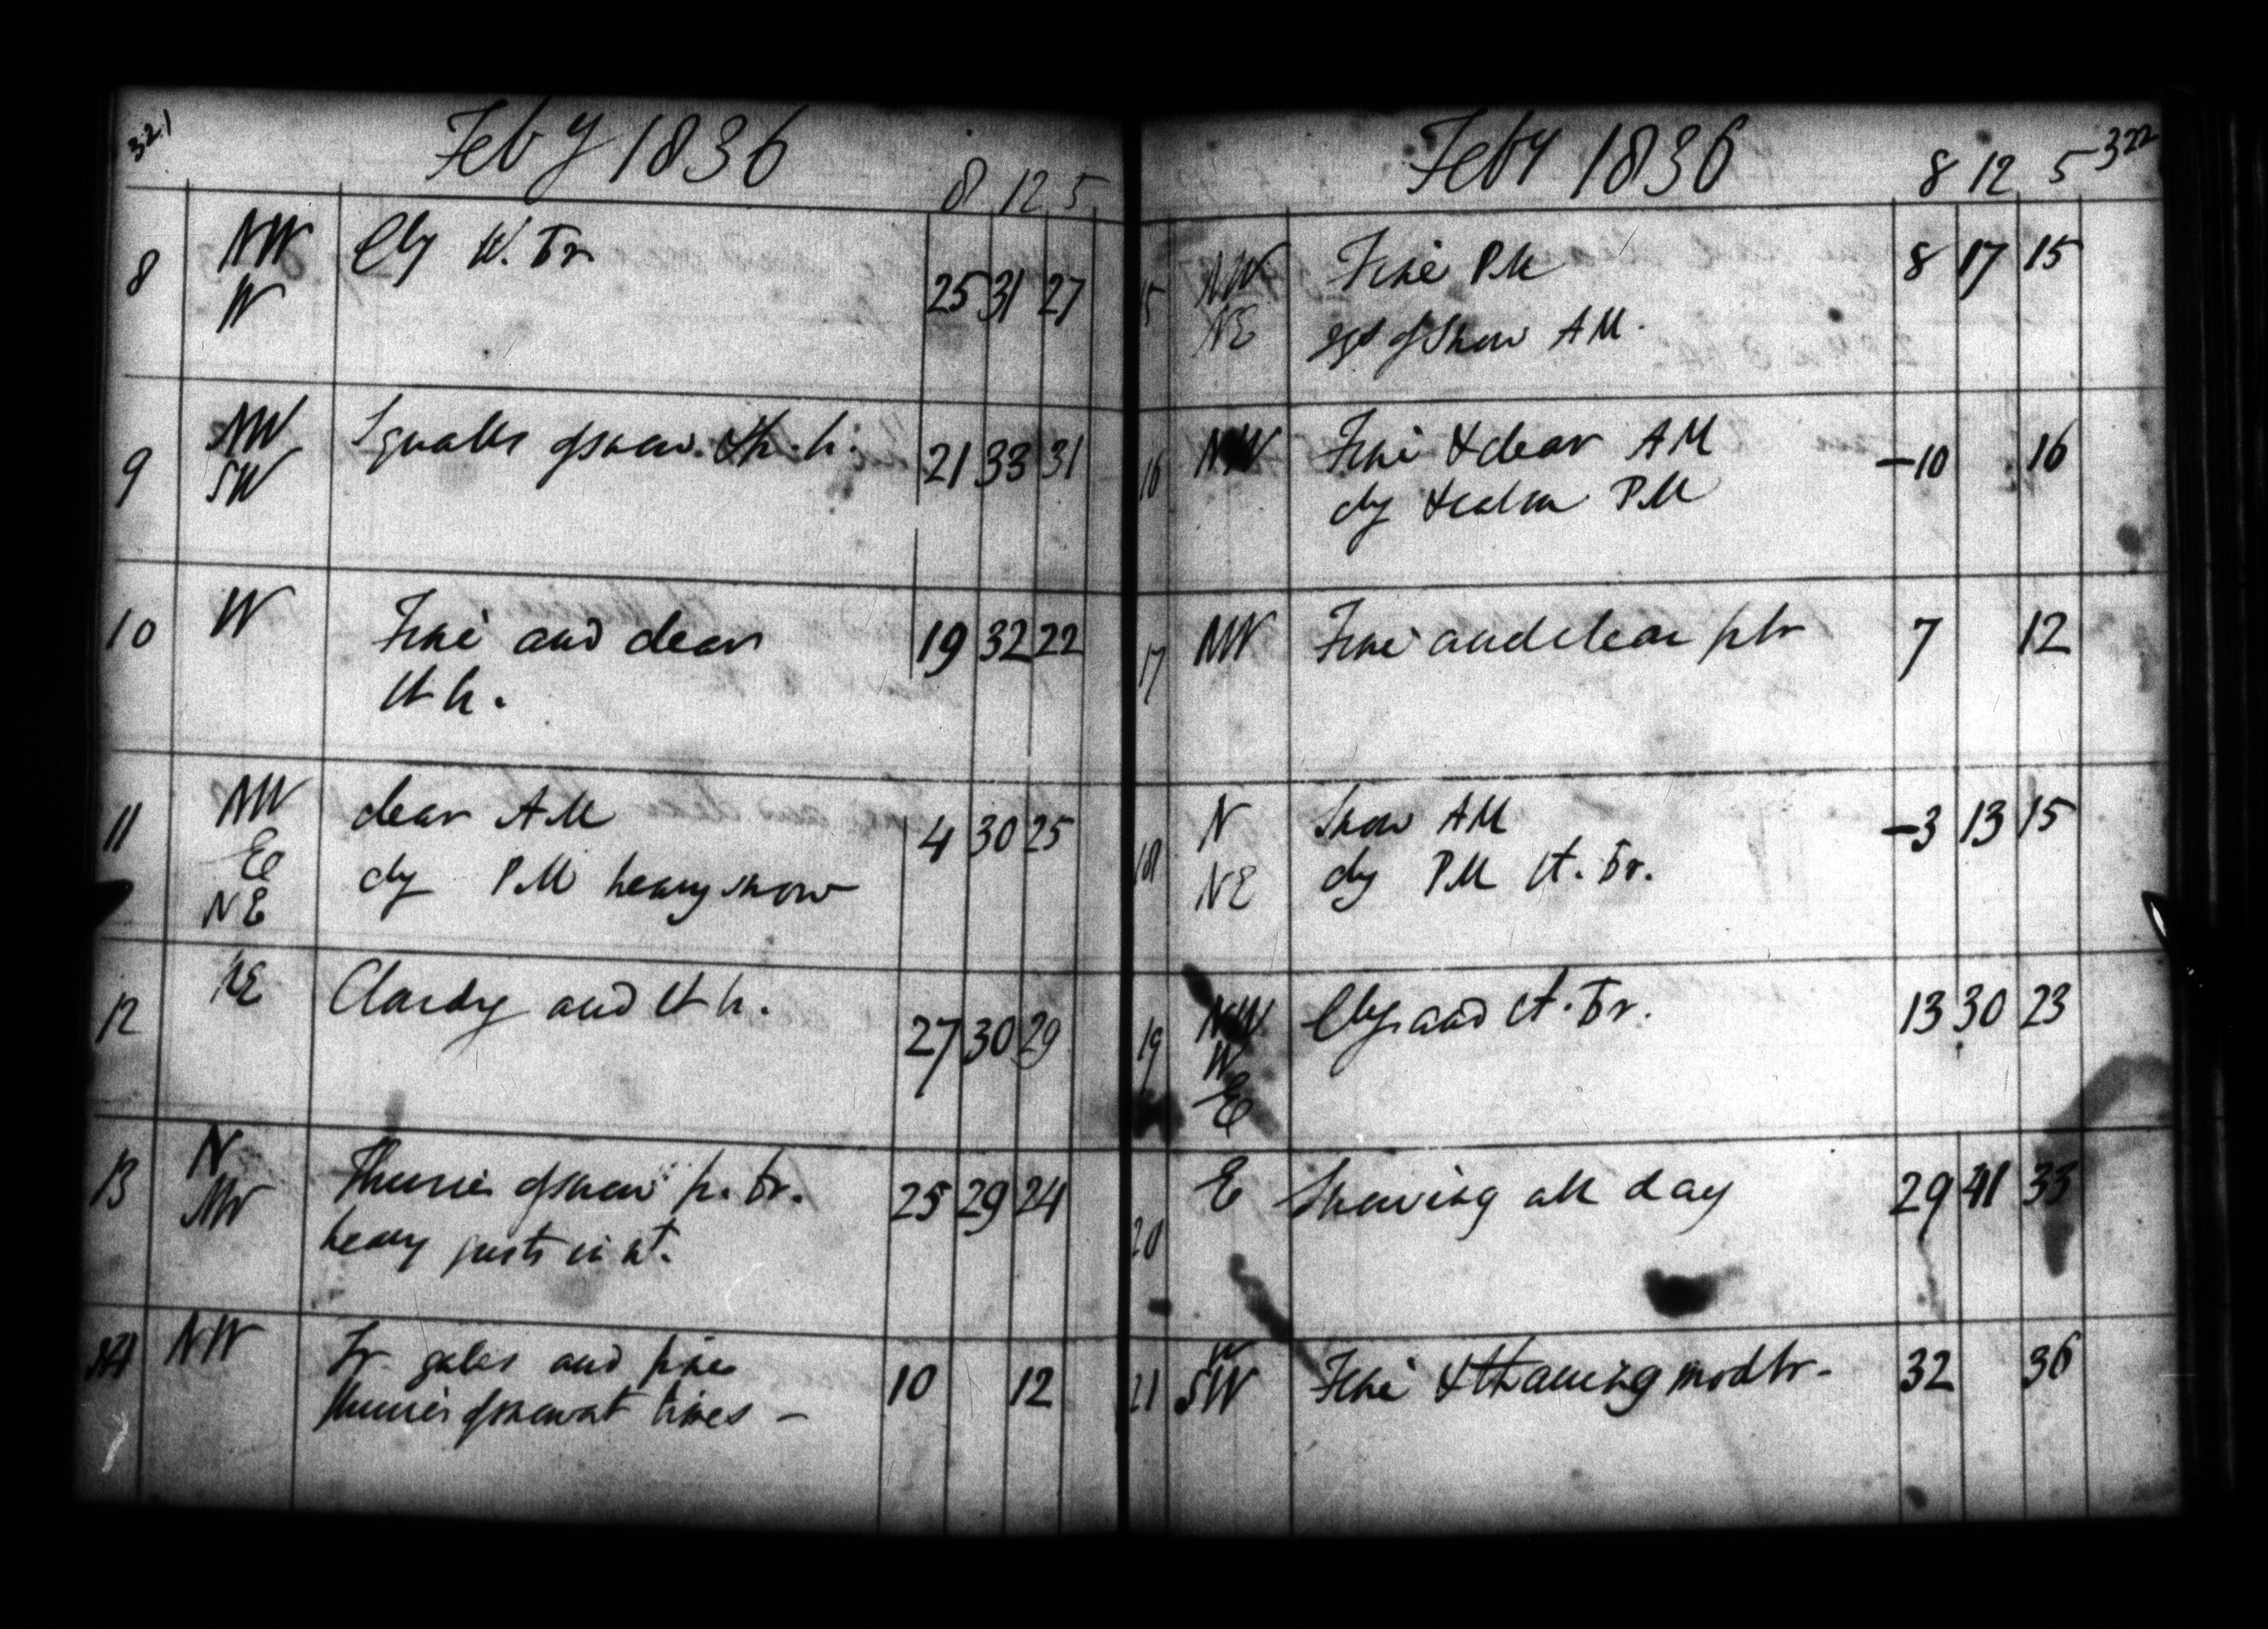 321
Feby 1836
8 12 5
8 NW Cly W. Br 25 31 27
W
9 NW Squalls of snow. 21 33 31
SW
10 W Fine and clear 19 32 22
lt h.
11 NW clear AM 4 30 25
E
NE cly PM heavy snow
12 NE Cloudy and lt h. 27 30 29
13 N Flurries of snow fr. br. 25 29 24
NW heavy gusts in nt.
14 NW Fr gales and fine 10 12
flurries of snow at times -
Feby 1836
8 12 5 322
15 NW Fine PM 8 17 15
NE sqs of Snow AM.
16 NW Fine & clear AM -10 16
cly & calm PM
17 NW Fine and clear fr br 7 12
18 N Snow AM -3 13 15
NE cly PM lt. Br.
19 NW Cly and lt. Br. 13 30 23
W
E
20 E Snowing all day 29 41 33
21 W
SW Fine & thawing mod br - 32 36